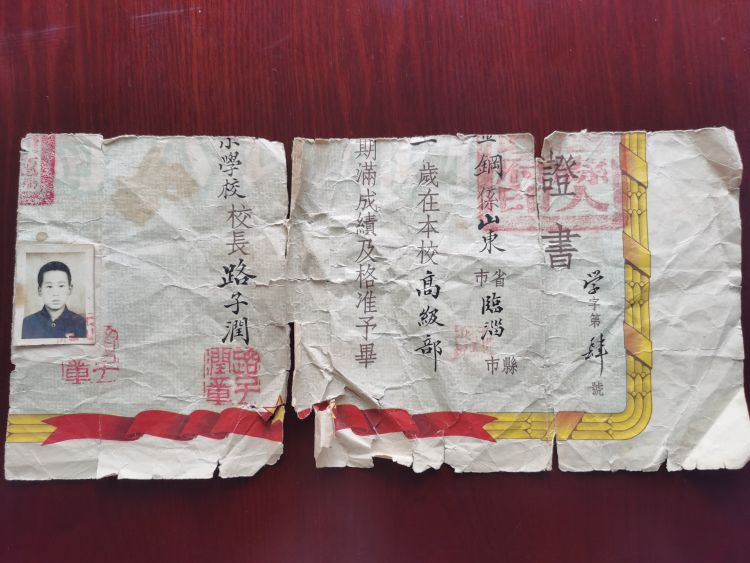 證書
学字第肆號
鋼係山東省市臨淄縣市
一歲在本校高級部
期滿成績及格准予畢
小學校校長路子潤
路子潤章